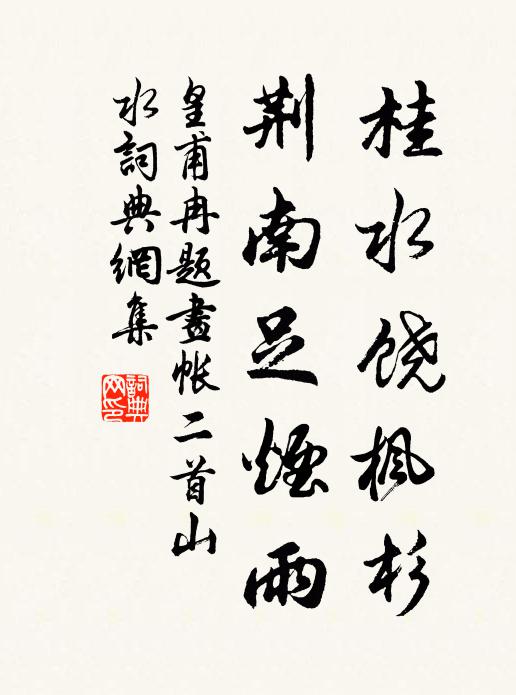 桂水饶楓杉
荆南足煙雨
皇甫冉题畫帐二首山
水詞典網集
詞典网印